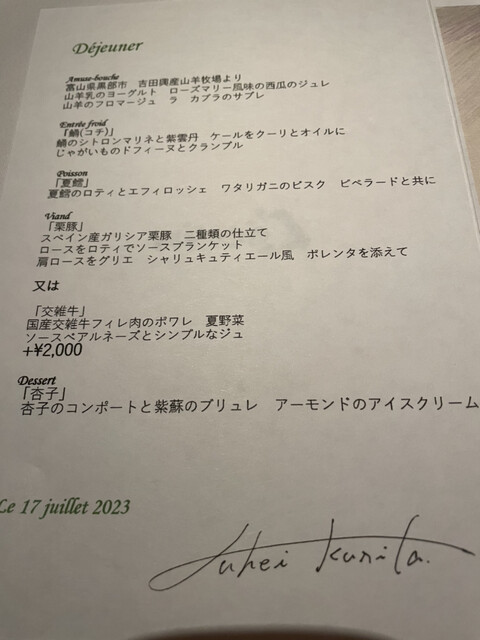 Déjeuner
Amuse-bouche
富山県黒部市　吉田興産山羊牧場より
山羊乳のヨーグルト　ローズマリー風味の西瓜のジュレ
山羊のフロマージュ　ラ　カプラのサブレ
Entrée froid
「鯒(コチ)」
鯒のシトロンマリネと紫雲丹　ケールをクーリとオイルに
じゃがいものドフィーヌとクランブル
Poisson
「夏鱈」
夏鱈のロティとエフィロッシェ　ワタリガニのビスク　ピペラードと共に
Viand
「栗豚」
スペイン産ガリシア栗豚　二種類の仕立て
ロースをロティでソースブランケット
肩ロースをグリエ　シャリュキュティエール風　ポレンタを添えて
又は
「交雑牛」
国産交雑牛フィレ肉のポワレ　夏野菜
ソースベアルネーズとシンプルなジュ
+¥2,000
Dessert
「杏子」
杏子のコンポートと紫蘇のブリュレ　アーモンドのアイスクリーム
Le 17 juillet 2023
Kunita.